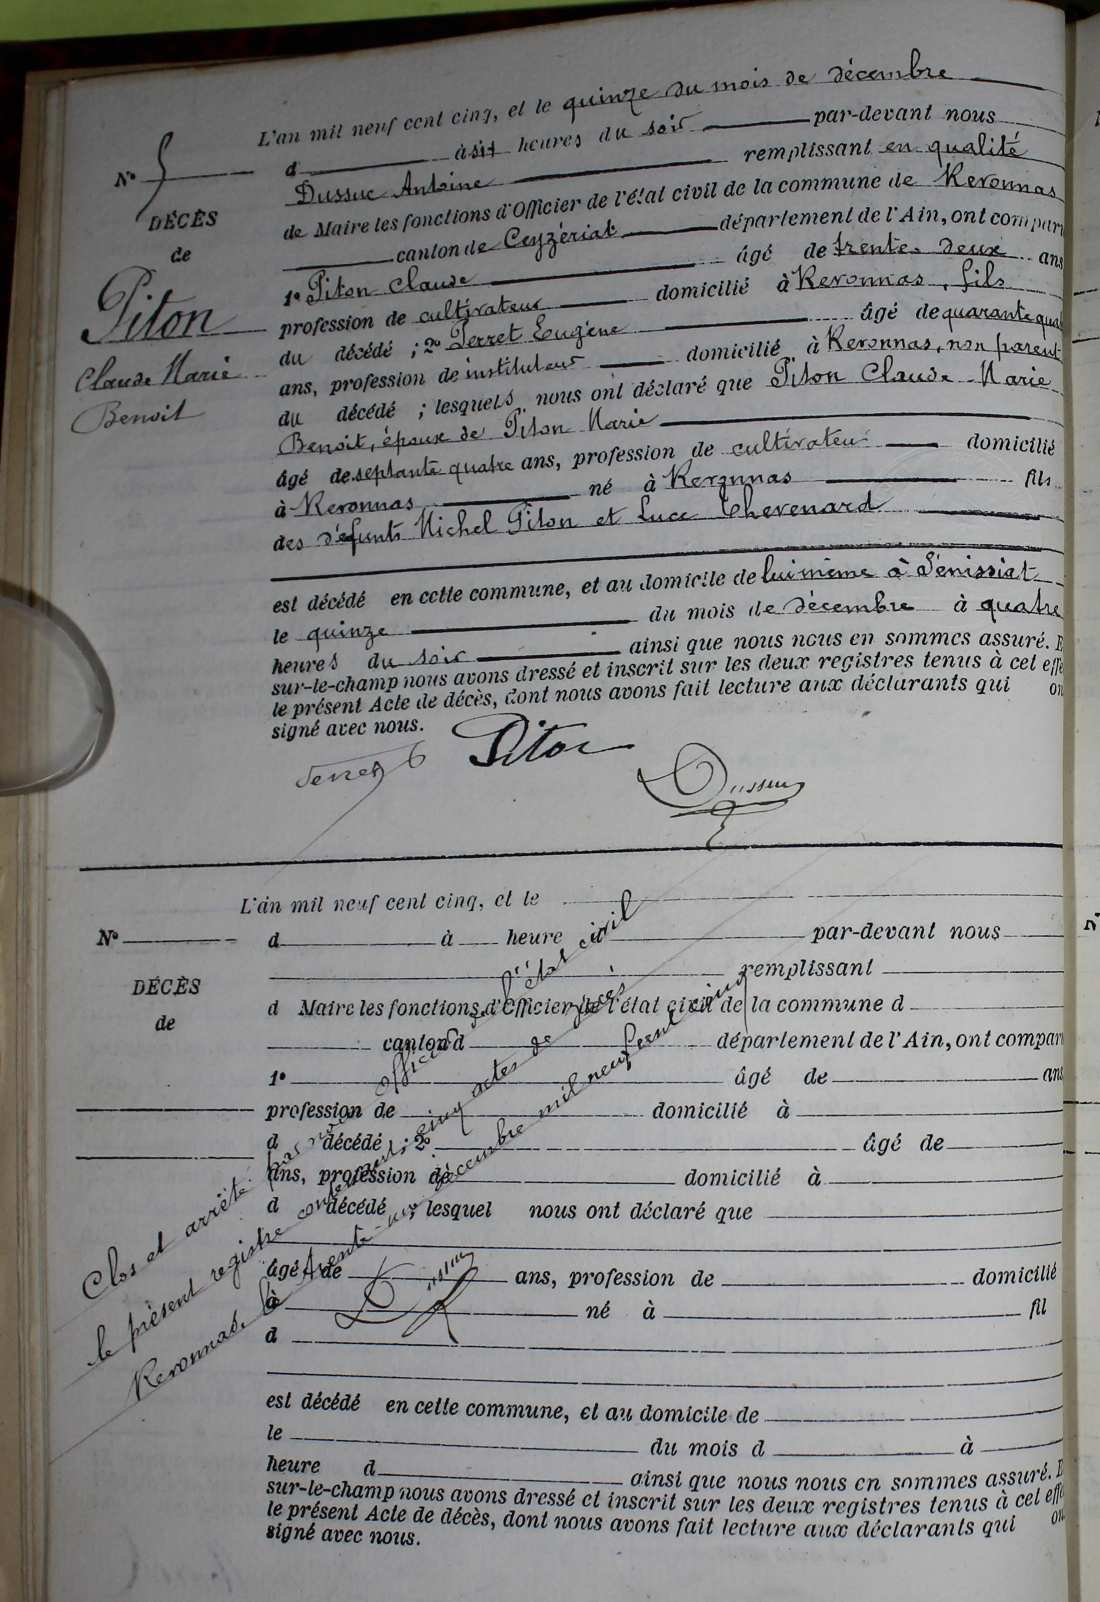 L'an mil neuf cent cinq, et le quinze du mois de décembre
Nº 5
d à six heures du soir par-devant nous
DÉCÈS
de
Piton
Claude Marie
Benoit
Dussuc Antoine remplissant en qualité
de Maire les fonctions d'Officier de l'état civil de la commune de Revonnas
canton de Ceyzériat département de l'Ain, ont compar
1º Piton Claude âgé de trente-deux ans
profession de cultivateur domicilié à Revonnas, fils
du décédé ; 2º Perret Eugène âgé de quarante qua
ans, profession de instituteur domicilié à Revonnas, non parent
du décédé ; lesquels nous ont déclaré que Piton Claude-Marie
Benoit, époux de Piton Marie
âgé de septante quatre ans, profession de cultivateur domicilié
à Revonnas né à Revonnas fils
des défunts Michel Piton et Luce Chevenard
est décédé en cette commune, et au domicile de lui même à Sénissiat
le quinze du mois de décembre à quatre
heures du soir ainsi que nous nous en sommes assuré. E
sur-le-champ nous avons dressé et inscrit sur les deux registres tenus à cet effe
le présent Acte de décès, dont nous avons fait lecture aux déclarants qui on
signé avec nous.
Perret Piton
Dussuc
L'an mil neuf cent cinq, et le
Nº d à heure par-devant nous
DÉCÈS
de
remplissant
d Maire les fonctions d'Officier de l'état civil de la commune d
canton d département de l'Ain, ont compar
1º âgé de ans
profession de domicilié à
d décédé ; 2º âgé de
ans, profession de domicilié à
d décédé ; lesquel nous ont déclaré que
âgé de ans, profession de domicilié
à né à fil
d
est décédé en cette commune, et au domicile de
le du mois d à
heure d ainsi que nous nous en sommes assuré. E
sur-le-champ nous avons dressé et inscrit sur les deux registres tenus à cet effe
le présent Acte de décès, dont nous avons fait lecture aux déclarants qui on
signé avec nous.
Clos et arrêté par nous officier de l'état civil
le présent registre contenant cinq actes de décès
Revonnas, le trente-un décembre mil neuf cent cinq
Dussuc